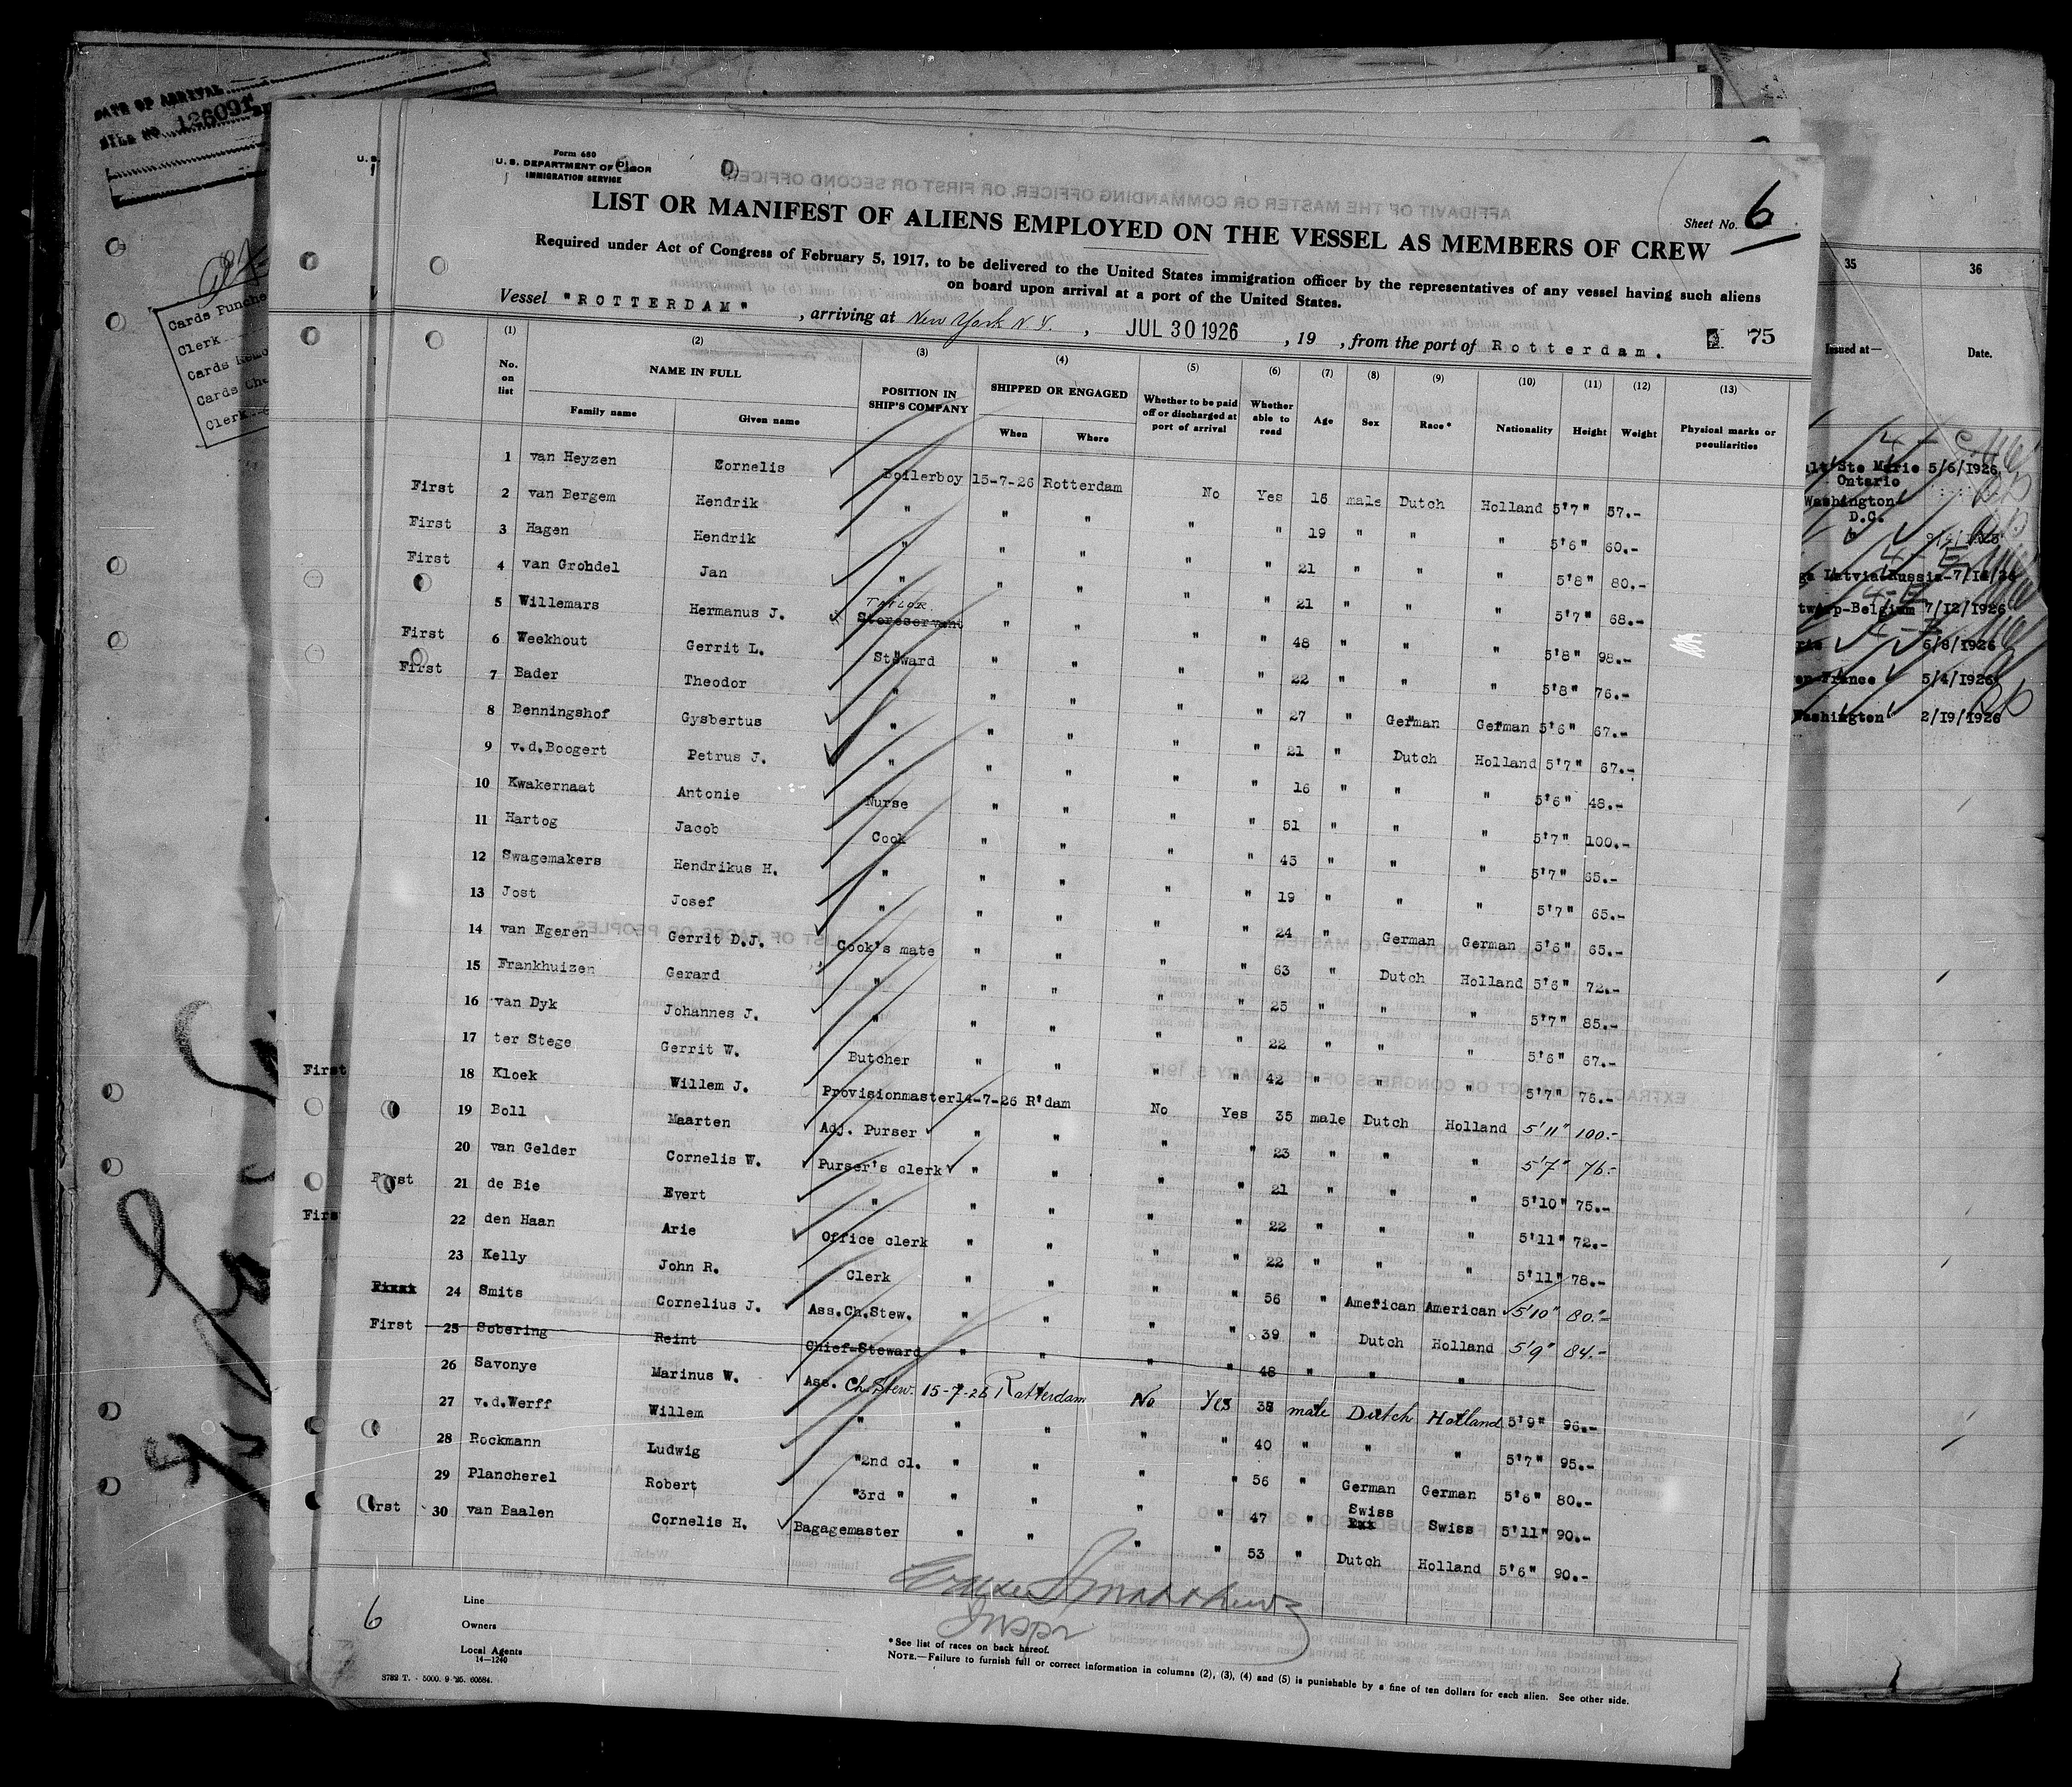 DATE OF ARRIVAL
FILE NO. 126091
Cards Punche
Clerk
Cards Remo
Cards Che
Clerk
Form 680
U. S. DEPARTMENT OF LABOR
IMMIGRATION SERVICE
Sheet No. 6
LIST OR MANIFEST OF ALIENS EMPLOYED ON THE VESSEL AS MEMBERS OF CREW
Required under Act of Congress of February 5, 1917, to be delivered to the United States immigration officer by the representatives of any vessel having such aliens
on board upon arrival at a port of the United States.
Vessel "ROTTERDAM", arriving at New York N Y., JUL 30 1926, 19 , from the port of Rotterdam. 75
(1) (2) (3) (4) (5) (6) (7) (8) (9) (10) (11) (12) (13)
No. on list NAME IN FULL Family name Given name POSITION IN SHIP'S COMPANY SHIPPED OR ENGAGED When Where Whether to be paid off or discharged at port of arrival Whether able to read Age Sex Race* Nationality Height Weight Physical marks or peculiarities
1 van Heyzen Cornelis Boilerboy 15-7-26 Rotterdam No Yes 16 male Dutch Holland 5'7" 57.-
First 2 van Bergem Hendrik " " " " " 19 " " " 5'6" 60.-
First 3 Hagen Hendrik " " " " " 21 " " " 5'8" 80.-
First 4 van Grondel Jan " " " " " 21 " " " 5'7" 68.-
5 Willemars Hermanus J. Taylor Storeservant " " " " 48 " " " 5'8" 98.-
First 6 Weekhout Gerrit L. Steward " " " " 22 " " " 5'8" 76.-
First 7 Bader Theodor " " " " " 27 " German German 5'6" 67.-
8 Benningshof Gysbertus " " " " " 21 " Dutch Holland 5'7" 67.-
9 v.d.Boogert Petrus J. " " " " " 16 " " " 5'6" 48.-
10 Kwakernaat Antonie Nurse " " " " 51 " " " 5'7" 100.-
11 Hartog Jacob Cook " " " " 45 " " " 5'7" 65.-
12 Swagemakers Hendrikus H. " " " " " 19 " " " 5'7" 65.-
13 Jost Josef " " " " " 24 " German German 5'6" 65.-
14 van Egeren Gerrit D.J. Cook's mate " " " " 63 " Dutch Holland 5'6" 72.-
15 Frankhuizen Gerard " " " " " 25 " " " 5'7" 85.-
16 van Dyk Johannes J. " " " " " 22 " " " 5'6" 67.-
17 ter Stege Gerrit W. Butcher " " " " 42 " " " 5'7" 76.-
First 18 Kloek Willem J. Provisionmaster 14-7-26 R'dam No Yes 35 male Dutch Holland 5'11" 100.-
19 Boll Maarten Adj. Purser " " " " 23 " " " 5'7" 76.-
20 van Gelder Cornelis W. Purser's clerk " " " " 21 " " " 5'10" 75.-
First 21 de Bie Evert " " " " " 22 " " " 5'11" 72.-
First 22 den Haan Arie Office clerk " " " " 22 " " " 5'11" 78.-
23 Kelly John R. Clerk " " " " 56 " American American 5'10" 80.-
24 Smits Cornelius J. Ass.Ch.Stew. " " " " 39 " Dutch Holland 5'9" 84.-
First 25 Sobering Reint Chief-Steward " " " " 48 " " "
26 Savonye Marinus W. Ass. Ch.Stew. 15-7-26 Rotterdam No Yes 38 male Dutch Holland 5'9" 96.-
27 v.d.Werff Willem " " " " " 40 " " " 5'7" 95.-
28 Rockmann Ludwig "2nd cl. " " " " 56 " German German 5'6" 80.-
29 Plancherel Robert "3rd " " " " " 47 " Swiss Swiss 5'11" 90.-
First 30 van Baalen Cornelis H. Bagagemaster " " " " 53 " Dutch Holland 5'6" 90.-
6
Line
Owners
Local Agents
14—1240
Inspr
*See list of races on back hereof.
NOTE.—Failure to furnish full or correct information in columns (2), (3), (4) and (5) is punishable by a fine of ten dollars for each alien. See other side.
35 36
Issued at— Date.
Ste Marie 5/6/1926
Ontario
Washington
D.C.
Latvia Russia
Belgium 7/12/1926
6/8/1926
France 5/4/1926
Washington 2/19/1926